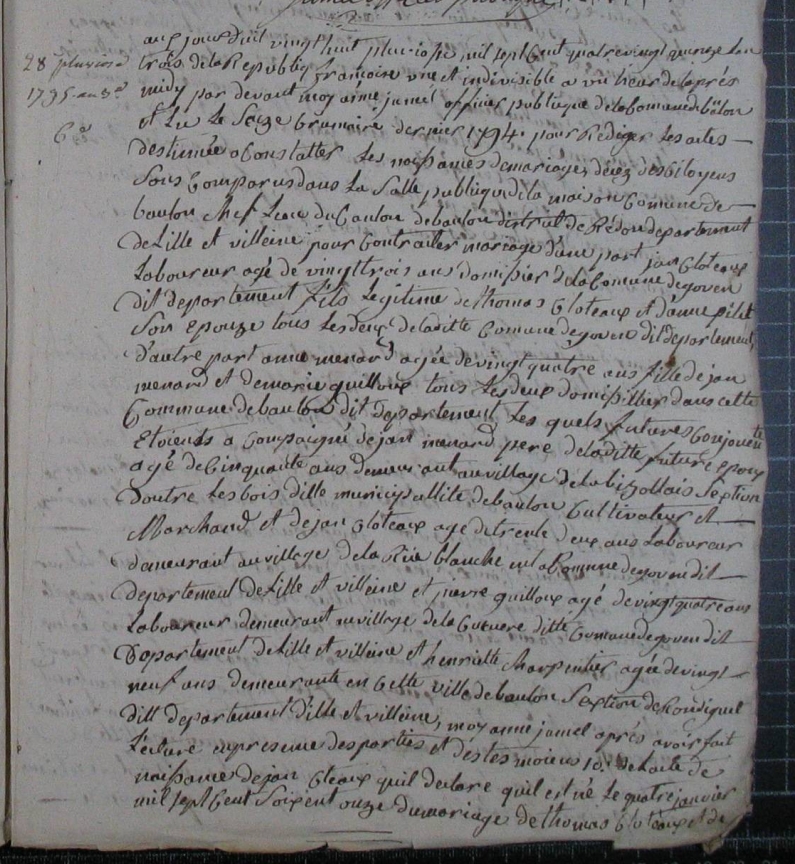 28 pluviose
1795 an 3e
6e
aujourduit vingt huit pluviose mil sept Cent quatre vingt quinze Lan
trois de la Republiq francoise une et indivisible a un heur de laprés
midy par devant moy aimé jamel officier publique de la Comune de bâlon
et Lu Le Seize brumaire dernier 1794 pour Rédiger Les actes
destinée a Constatter Les naissances de mariages décez des Citoyens
Sons Comparus dans La Salle publique de la maison Comune de
baulon Chef Lieu du Canton de baulon district de Rédon departement
de Lille et villeine pour Contracter mariage d'une part jan Gloteaux
Laboureur agé de vingt trois ans domisier de la Comune de goven
dit departement fils Legitime de thomas Gloteaux et danne pilet
Son epouze tous Les deux de laditte Comune de goven dit departement,
d'autre part anne menard agée de vingt quatre ans fille de jan
menard et de marie guilloux tous Les deux domisillier dans cette
Commune de baulon dit departement Les quels futures Conjouen
Etoients a Compaigné de jan menard pere de laditte future epoux
agé de Cinquante ans demeurant au village de La bizollais Section
Doutre Les bois ditte municipallité de baulon Cultivateur et
Marchand et de jan Gloteaux agé de trente deux ans Laboureur
demeurant au village de la Réie blanche en la Comune de goven dit
departement de Lille et villeine et pierre guilloux agé de vingt quatre ans
Laboureur demeurant au village de la ditte Comune de goven dit
Departement de Lille et villeine et henriette charpentier agée de vingt
neuf ans demeurante en Cette ville de baulon Section de
ditt departement d'ille et villeine, moy aimé jamel aprés avoir fait
Lecture en presence des parties et des tes moiens 1o. de Lacte de
naissance de jan Gloteaux quil declare quil est né Le quatre janvier
mil sept Cent Soixent onze du mariage de thomas Gloteaux et de